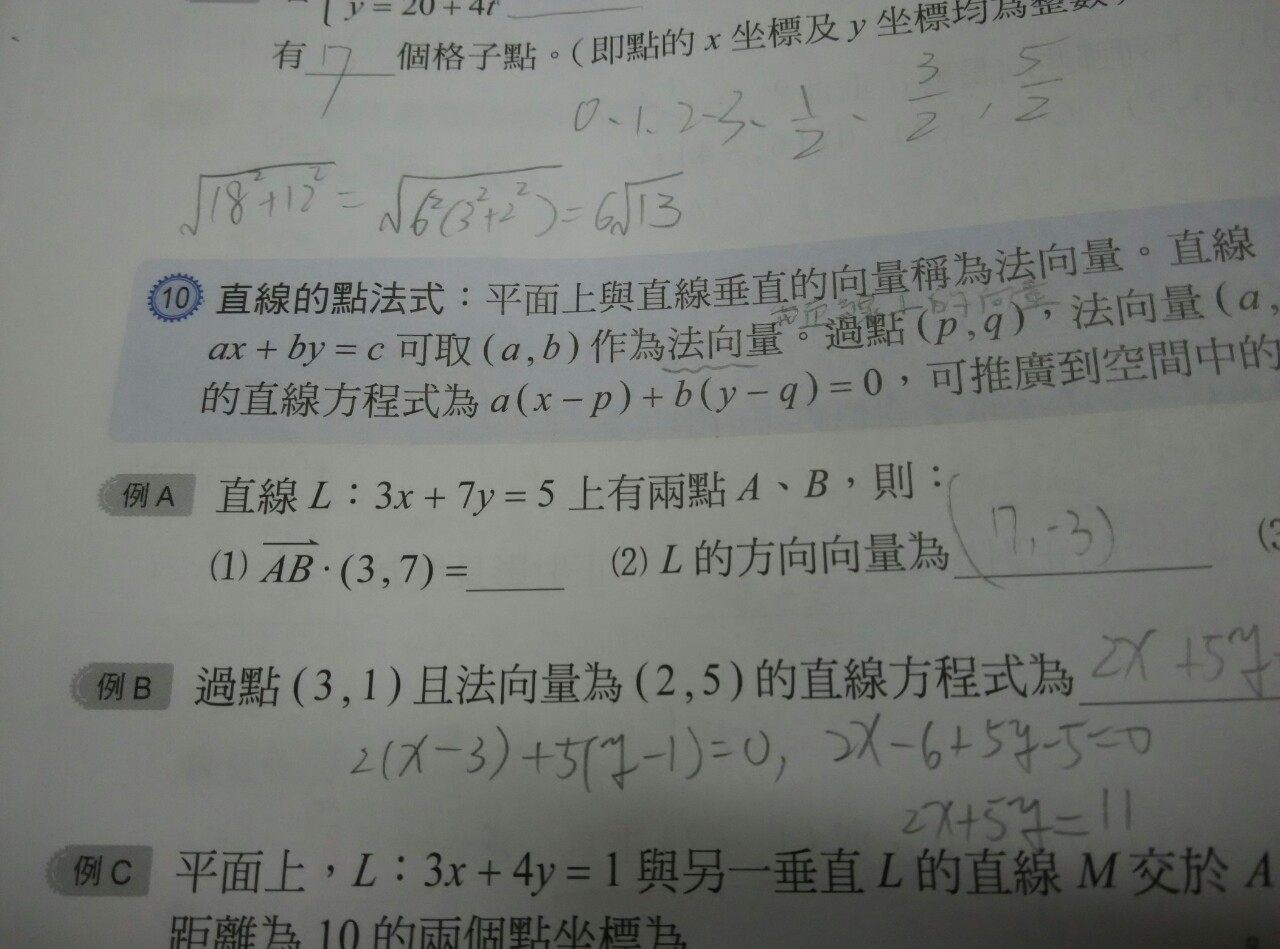 y = 20 + 4t
有 7 個格子點。(即點的 x 坐標及 y 坐標均為整數,
0、1、2、3、1/2、3/2,5/2
√18²+12² = √6²(3²+2²) = 6√13
10 直線的點法式:平面上與直線垂直的向量稱為法向量。直線
ax + by = c 可取 (a, b) 作為法向量。過點 (p, q),法向量 (a,
的直線方程式為 a(x − p) + b(y − q) = 0,可推廣到空間中的
例 A 直線 L:3x + 7y = 5 上有兩點 A、B,則:
(1) AB · (3, 7) = ____ (2) L 的方向向量為 (7, -3) (3
例 B 過點 (3, 1) 且法向量為 (2, 5) 的直線方程式為 2x + 5y
2(x-3)+5(y-1)=0, 2x-6+5y-5=0
2x+5y=11
例 C 平面上,L:3x + 4y = 1 與另一垂直 L 的直線 M 交於 A
距離為 10 的兩個點坐標為